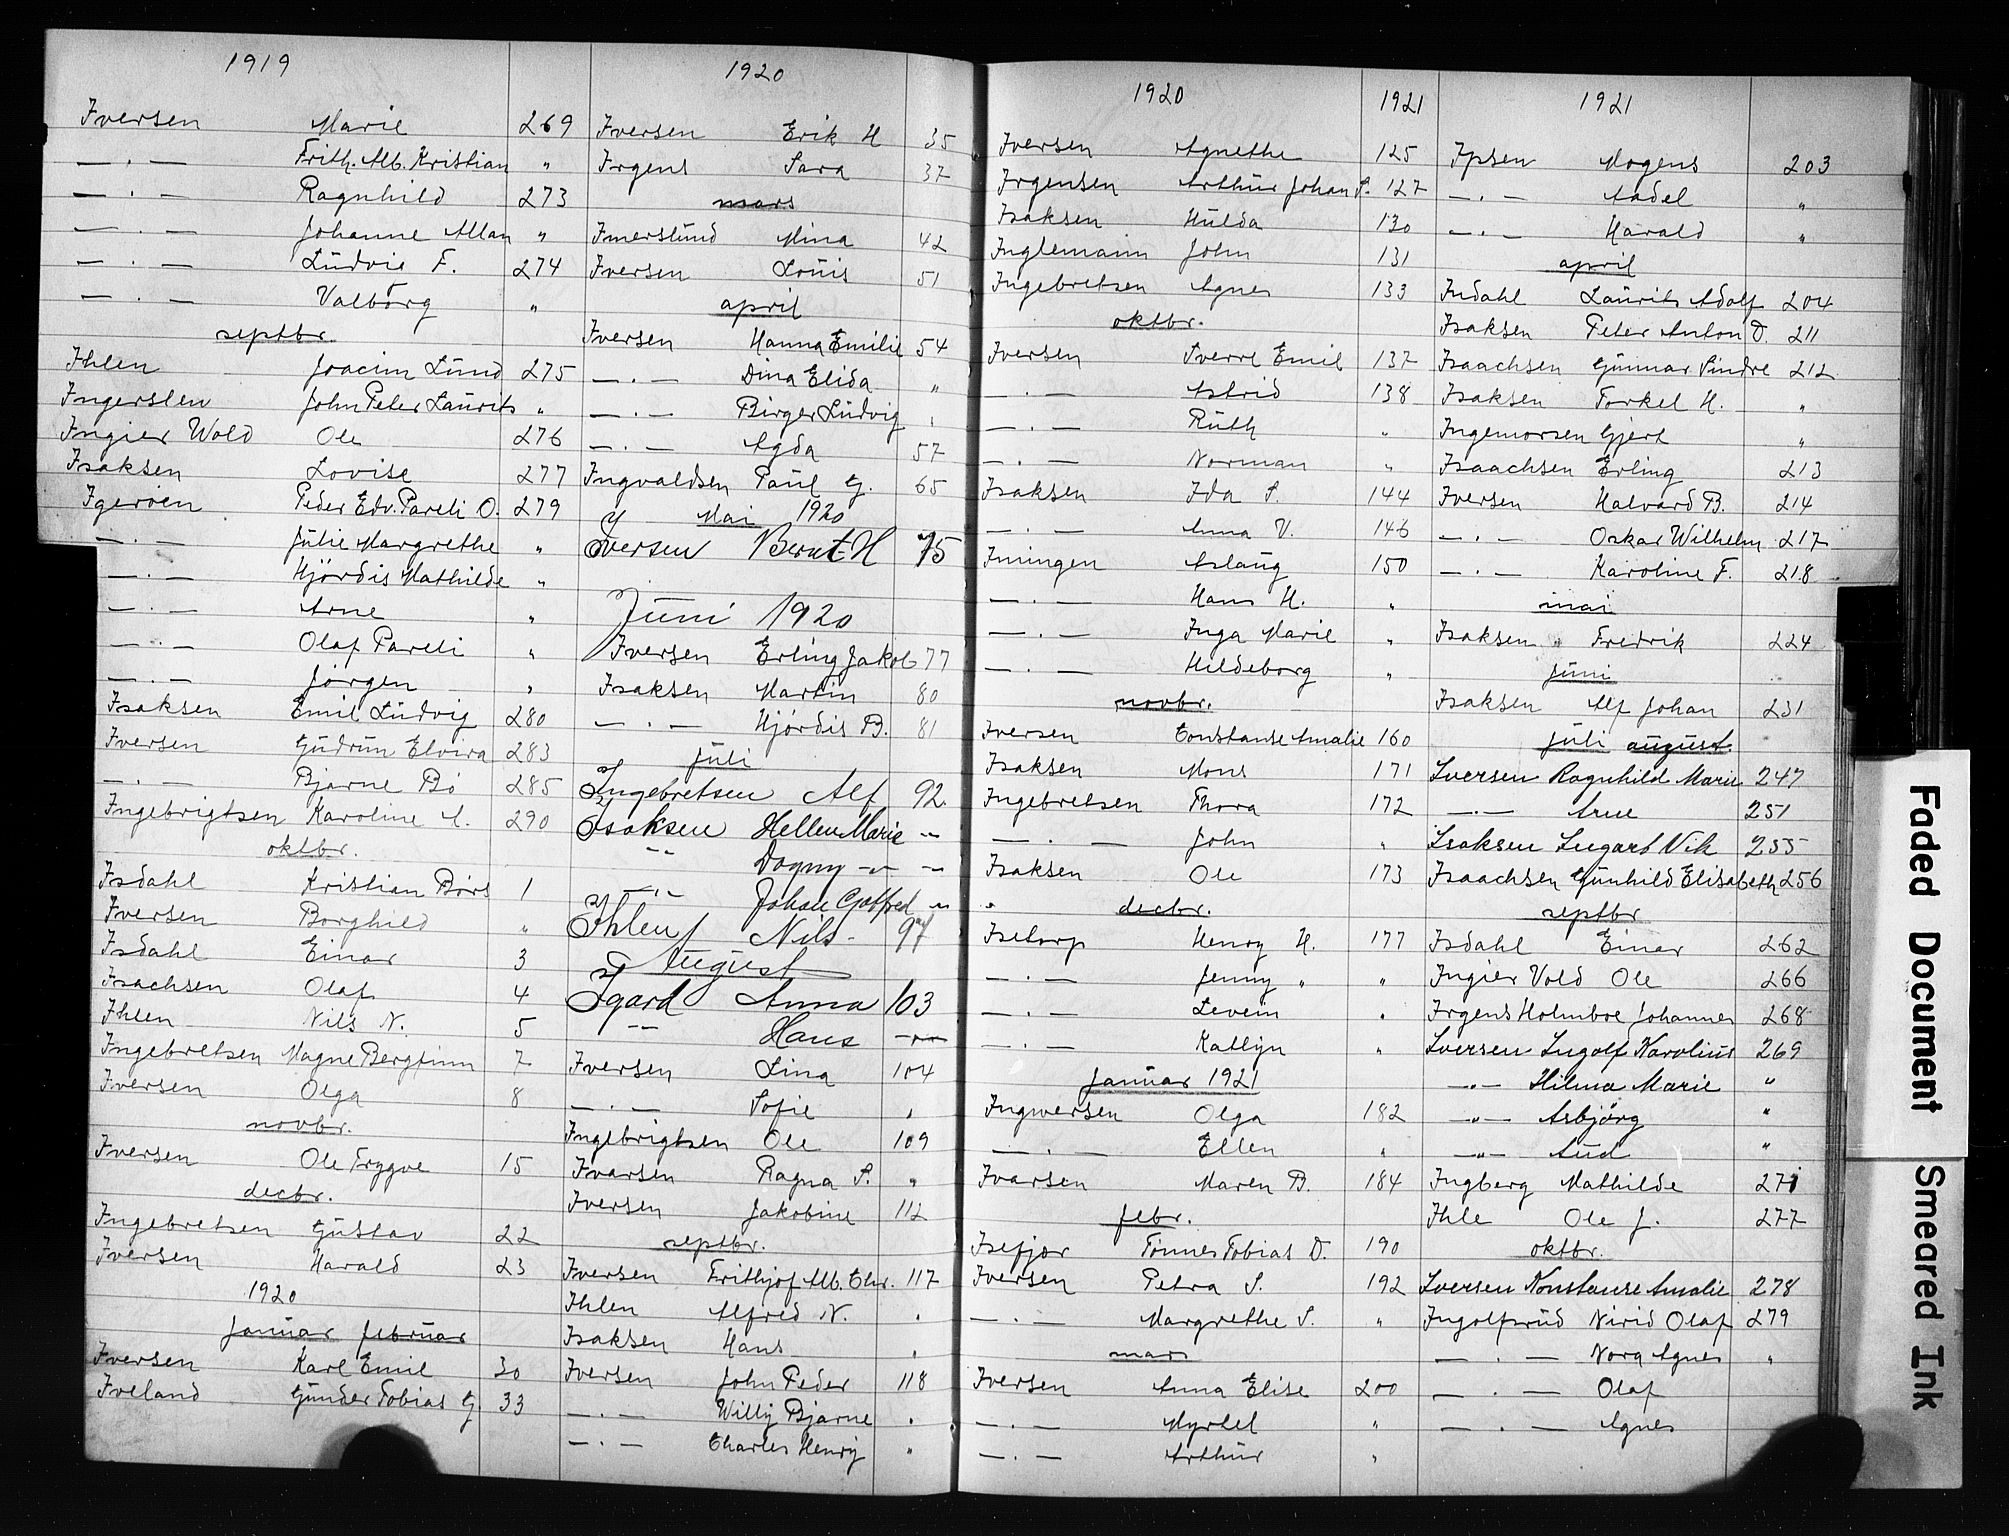 1919
Iversen Marie 269
— . — Frith. Alb. Kristian "
— . — Ragnhild 273
— . — Johanne Allan "
— . — Ludvig F. 274
— . — Valborg "
septbr.
Ihlen Joacim Lund 275
Ingerslev John Peter Laurits "
Ingier Wold Ole 276
Isaksen Lovise 277
Igeröen Peder Edv. Pareli O. 279
— . — Julie Margrethe "
— . — Hjördis Mathilde "
— . — Arne "
— . — Olaf Pareli "
— . — Jörgen "
Isaksen Emil Ludvig 280
Iversen Gudrun Elvira 283
— . — Bjarne Bö 285
Ingebrigtsen Karoline A. 290
oktbr.
Isdahl Kristian Börs 1
Iversen Borghild "
Isdahl Einar 3
Isachsen Olaf 4
Ihlen Nils N. 5
Ingebretsen Magne Bergfinn 7
Iversen Olga 8
novbr.
Iversen Ole Trygve 15
decbr.
Ingebretsen Gustav 22
Iversen Harald 23
1920
Januar februar
Iversen Karl Emil 30
Iveland Gunder Tobias G. 33
1920
Iversen Erik H 35
Irgens Sara 37
mars
Imerslund Mina 42
Iversen Louis 51
april
Iversen Hanna Emilie 54
— . — Dina Elida "
— . — Birger Ludvig "
— . — Agda 57
Ingvaldsen Paul G. 65
Mai 1920
Iversen Bernt H 75
Juni 1920
Iversen Erling Jakob 77
Isaksen Martin 80
— . — Hjördis B. 81
juli
Ingebretsen Alf 92
Isaksen Hellen Marie "
" Dagny — " — "
— " — Johan Gotfred "
Ihlen Nils 97
August
Igard Anna 103
" Hans — " —
Iversen Lina 104
— . — Sofie "
Ingebrigtsen Ole 109
Ivarsen Ragna S. "
Iversen Jakobine 112
septbr.
Iversen Frithjof Alb. Chr. 117
Ihlen Alfred N. "
Isaksen Hans "
Iversen John Peder 118
— . — Willy Bjarne "
— . — Charles Henry "
1920 1921
Iversen Agnethe 125
Irgensen Arthur Johan S. 127
Isaksen Hulda 130
Inglemann John 131
Ingebretsen Agnes 133
oktbr.
Iversen Sverre Emil 137
— . — Astrid 138
— . — Ruth "
— . — Norman "
Isaksen Ida S. 144
— . — Anna V. 146
Imingen Aslaug 150
— . — Hans H. "
— . — Inga Marie "
— . — Hildeborg "
novbr.
Iversen Constanse Amalie 160
Isaksen Mons 171
Ingebretsen Thora 172
— . — John "
Isaksen Ole 173
decbr.
Isetorp Henry H. 177
— . — Jenny " "
— . — Levein "
— . — Katlyn "
Januar 1921
Ingwersen Olga 182
— . — Ellen "
Ivarsen Maren B. 184
febr.
Isefjær Tönnes Tobias D. 190
Iversen Petra S. 192
— . — Margrethe S. "
mars
Iversen Anna Elise 200
— . — Myrtel "
— . — Arthur "
1921
Ipsen Mogens 203
— . — Aadel "
— . — Harald "
april
Indahl Laurits Adolf 204
Isaksen Peter Anton D. 211
Isaachsen Gunnar Sindre 212
Isaksen Torkel H. "
Ingemorsen Gjert "
Isaachsen Erling 213
Iversen Halvard B. 214
— . — Oskar Wilhelm 217
— . — Karoline F. 218
mai
Isaksen Fredrik 224
juni
Isaksen Alf Johan 231
juli august
Iversen Ragnhild Marie 247
— . — Arne 251
Isaksen Ingart Vik 255
Isaachsen Gunhild Elisabeth 256
septbr
Isdahl Einar 262
Ingier Vold Ole 266
Irgens Holmboe Johannes 268
Iversen Ingolf Karolius 269
— " — Hilma Marie "
— " — Asbjörg "
— " — Aud "
Ingberg Mathilde 271
Ihle Ole J. 277
oktbr.
Iversen Konstanse Amalie 278
Ingolfsrud Nirid Olaf 279
— . — Nora Agnes "
— . — Olaf
— . — Agnes
Faded Document Smeared Ink